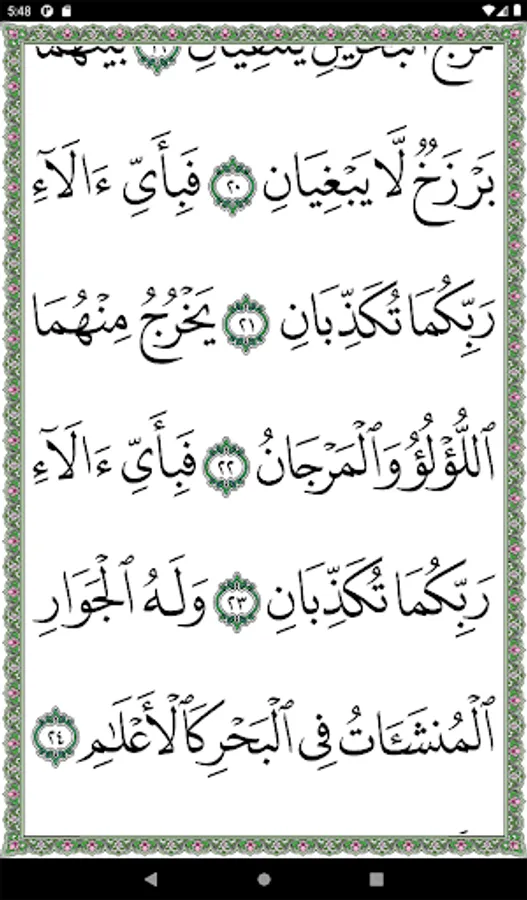 5:48
مَرَجَ ٱلْبَحْرَيْنِ يَلْتَقِيَانِ ١٩ بَيْنَهُمَا
بَرْزَخٌ لَّا يَبْغِيَانِ ٢٠ فَبِأَىِّ ءَالَآءِ
رَبِّكُمَا تُكَذِّبَانِ ٢١ يَخْرُجُ مِنْهُمَا
ٱللُّؤْلُؤُ وَٱلْمَرْجَانُ ٢٢ فَبِأَىِّ ءَالَآءِ
رَبِّكُمَا تُكَذِّبَانِ ٢٣ وَلَهُ ٱلْجَوَارِ
ٱلْمُنشَـَٔاتُ فِى ٱلْبَحْرِ كَٱلْأَعْلَـٰمِ ٢٤